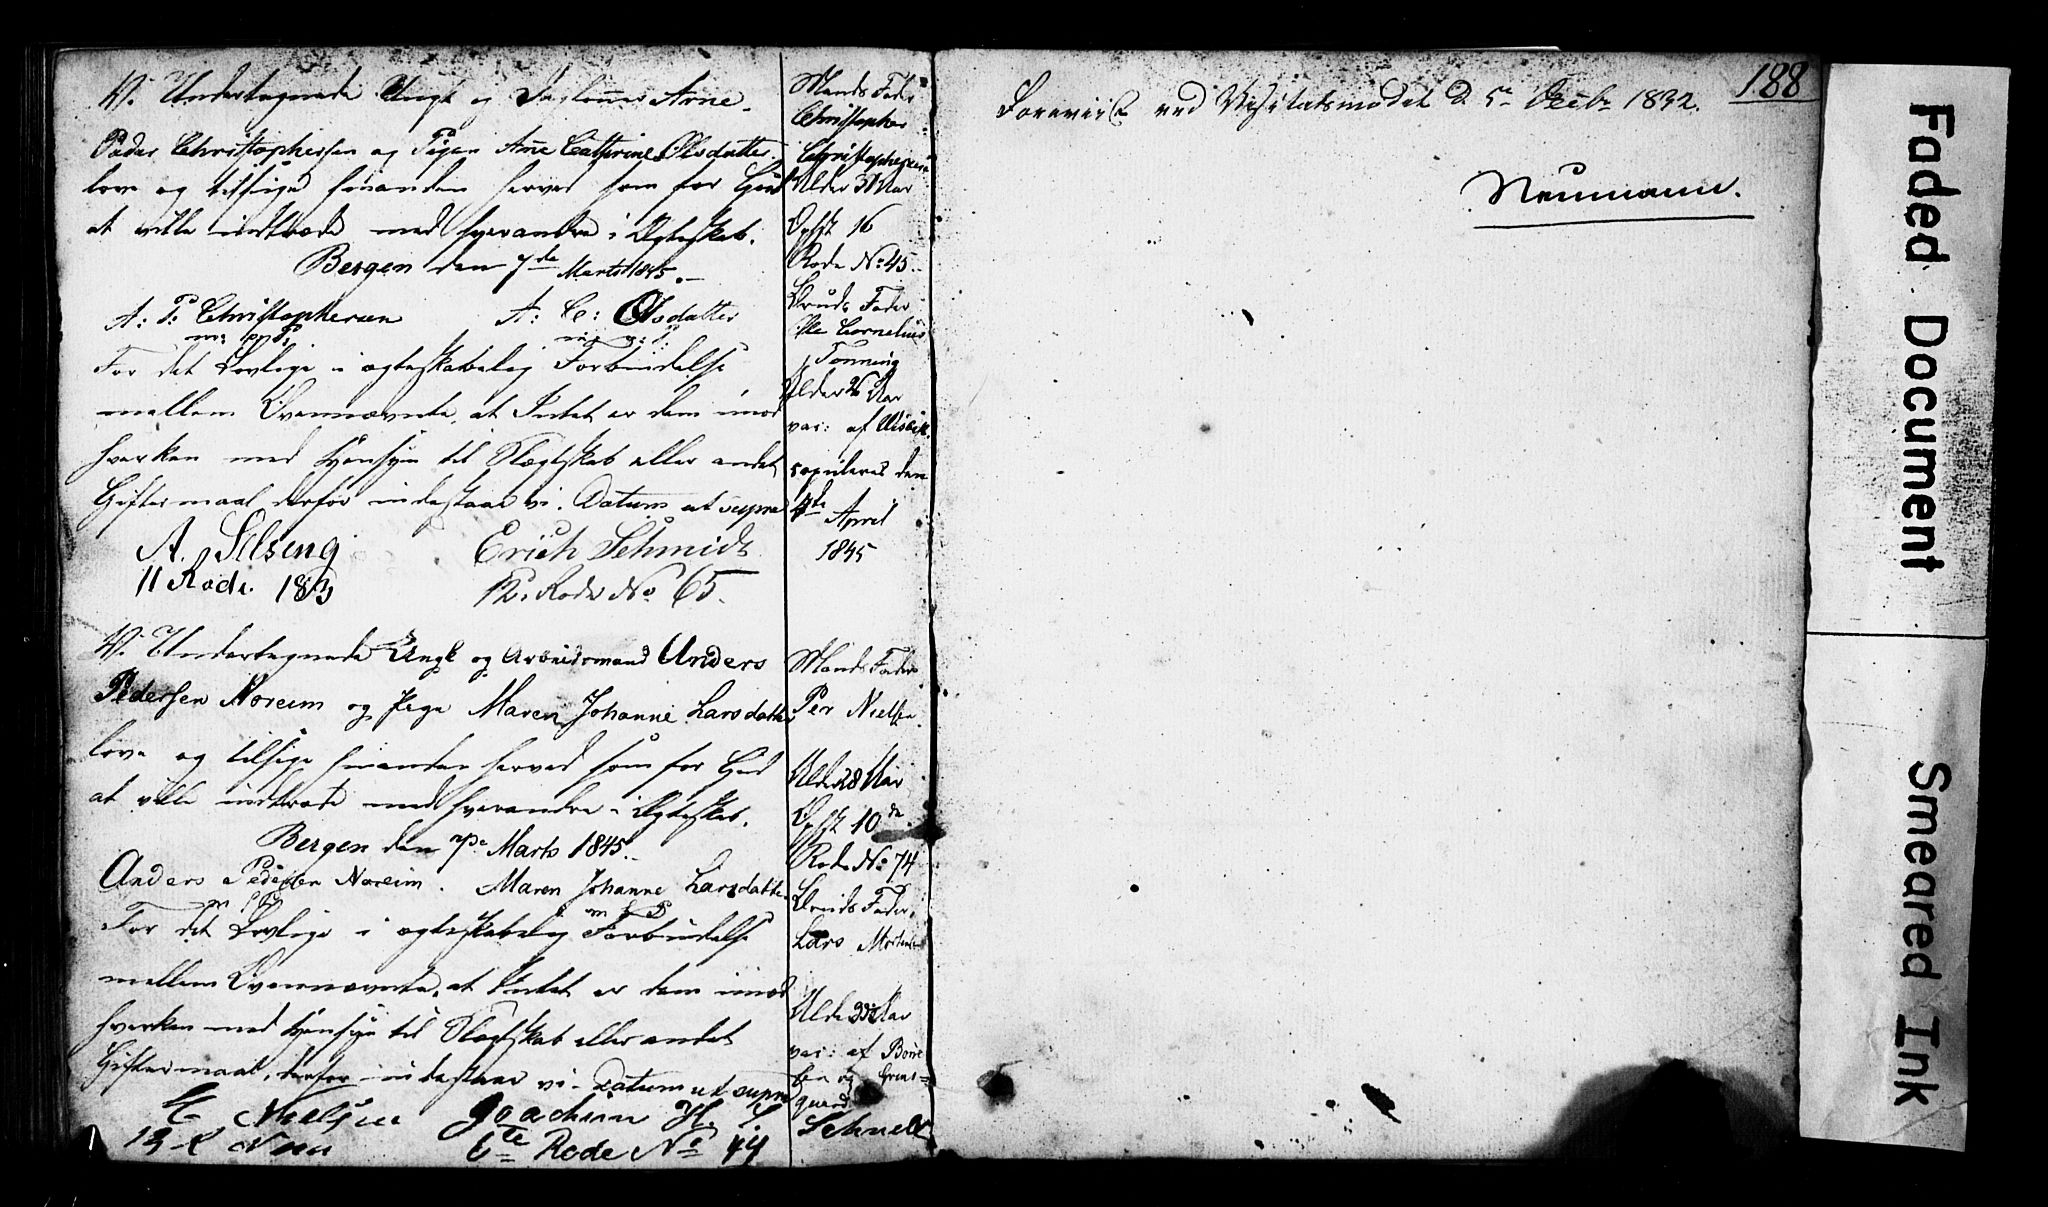 Vi Undertegnede Ungk og Dagløner Arne
Peder Christophersen og Pigen Ane Cathrine Olsdatter
love og tilsige hinanden herved som for Gud
at ville indtræde med hverandre i Ægteskab.
Bergen den 7de Marts 1845.
A: P: Christophersen A: C: Olsdatter
m: p: P: m: p: P:
For det Lovlige i ægteskabelig Forbindelse
mellem Ovennævnte, at Intet er dem imod
hverken med Hensyn til Slægtskab eller andet
Giftermaal derfor indestaae vi. Datum ut supra
A. Selseng Erich Schmidt
11 Rode. 183 12. Rode No 65.
Vi Undertegnede Ungk og Arbeidsmand Anders
Pedersen Noreim og Pige Maren Johanne Larsdatter
love og tilsige hinanden herved som for Gud
at ville indtræde med hverandre i Ægteskab.
Bergen den 7de Marts 1845.
Anders Pedersen Noreim. Maren Johanne Larsdatter
m f P m f P
For det Lovlige i ægteskabelig Forbindelse
mellem Ovennævnte, at Intet er dem imod
hverken med Hensyn til Slægtskab eller andet
Giftermaal, derfor indestaae vi. Datum ut supra
Nielsen Joachim H. S. Schnell
13 R 6te Rode No 44
Mands Fader
Christopher
Christophersen
Alder 31 Aar
Opht 16
Rode No 45.
Bruds Fader
Ole Cornelius
Tønning
Alder 26 Aar
vac: af
copuleres den
4de April
1845
Mands Fader
Per Nielsen
Alder 28 Aar
Opht 10de
Rode No 74
Bruds Fader
Lars
Alder Aar
vac: af
og
188
Foreviist ved Visitatsmødet d 5te Octbr 1832.
Neumann.
Faded Document
Smeared Ink